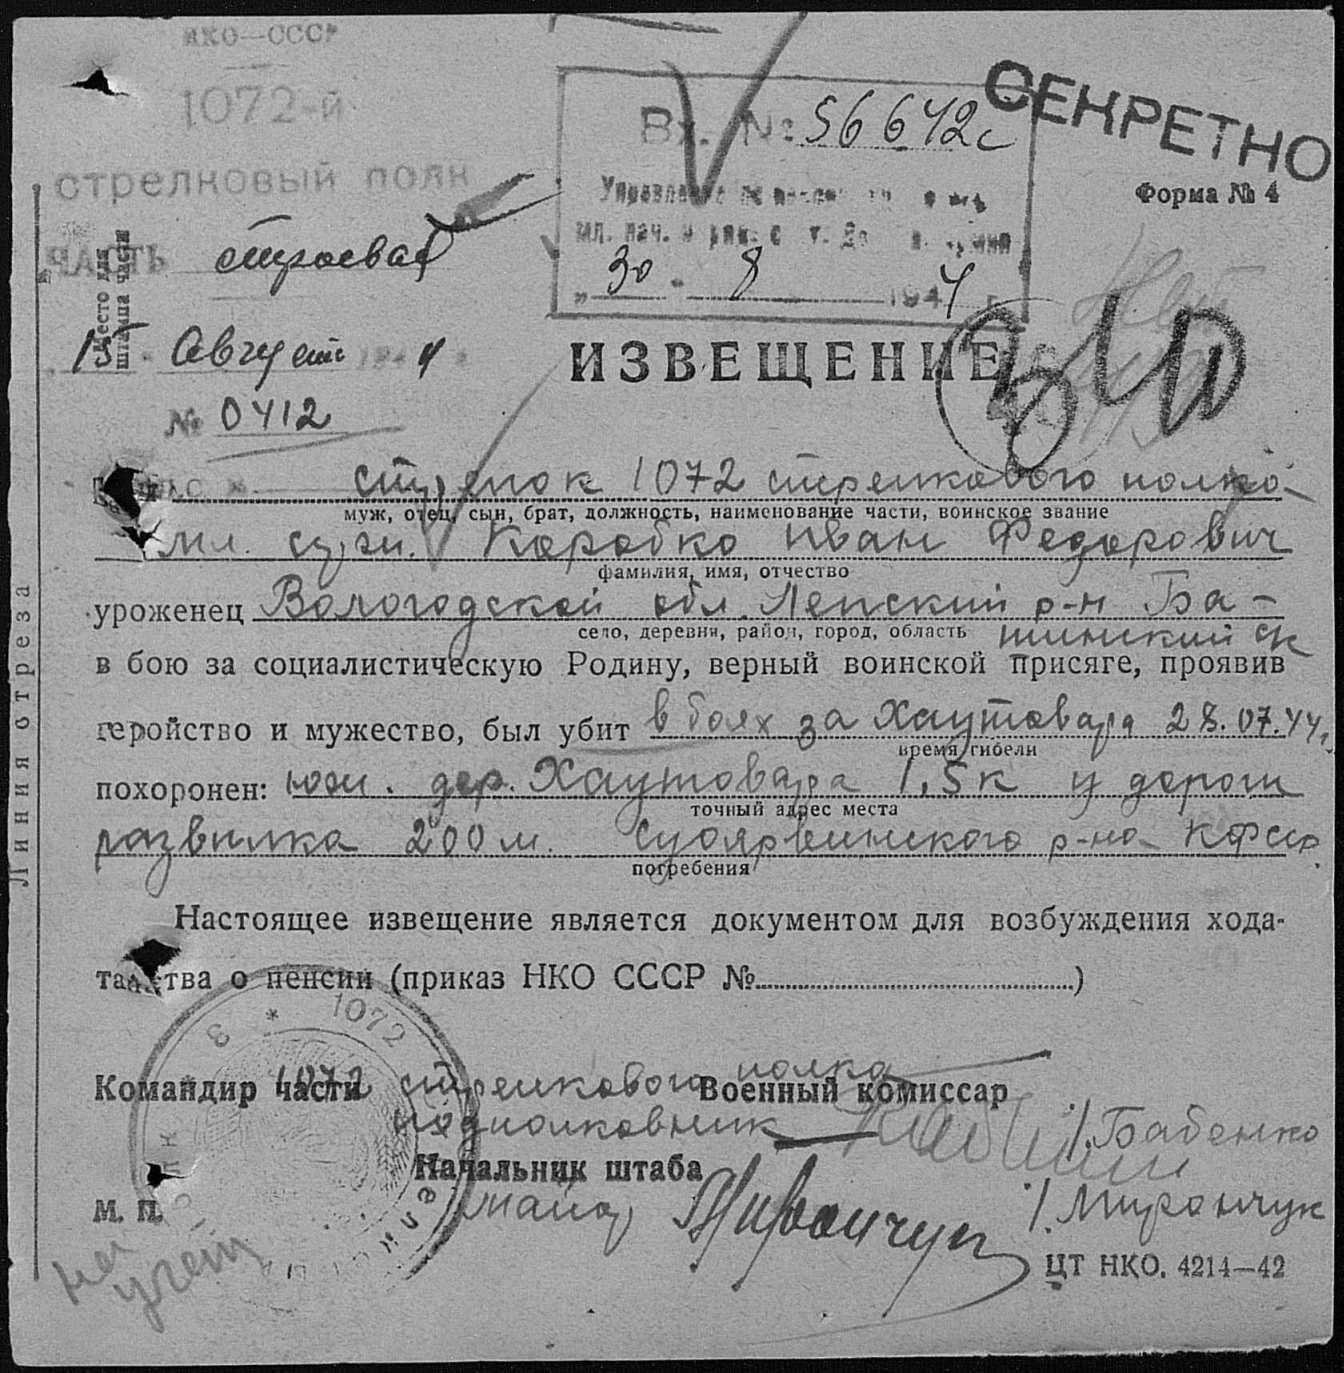 НКО—СССР
1072-й
стрелковый полк
ЧАСТЬ строевая
Место для
штампа части
15 Август 194 4
№ 0412
Вх. № 56642с
Управление по
мл. нач. и ряд. с
„ 30 " 8 1944 г.
СЕКРЕТНО
Форма № 4
ИЗВЕЩЕНИЕ
стрелок 1072 стрелкового полка
муж, отец, сын, брат, должность, наименование части, воинское звание
мл. серж. Коробко Иван Федорович
фамилия, имя, отчество
уроженец Вологодской обл. Ленский р-н Ба-
село, деревня, район, город, область
в бою за социалистическую Родину, верный воинской присяге, проявив
геройство и мужество, был убит в боях за Хаутовара 28.07.44 г.
время гибели
похоронен: юж. дер. Хаутовара 1,5 к у дороги
точный адрес места
развилка 200 м. Суоярвинского р-на КФССР.
погребения
Настоящее извещение является документом для возбуждения хода-
тайства о пенсии (приказ НКО СССР № )
Командир части 1072 стрелкового полка Военный комиссар
подполковник /. Бабенко
Начальник штаба
майор Миранчук /. Миранчук
М. П.
1072
на учет
ЦТ НКО. 4214—42
Линия отреза